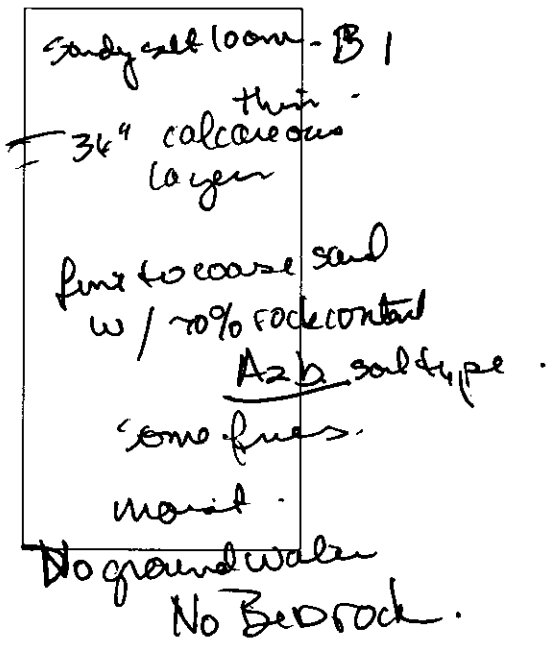 Sandy silt loam - B1
thin
36" calcareous
layer
fine to coarse sand
w/ ~70% rock content
A2b soil type.
some fines.
moist.
No groundwater
No Bedrock.